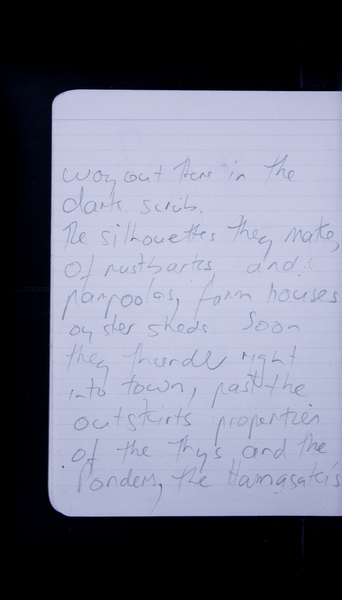 way out there in the
dark scrub.
The silhouettes they make,
Of rustbarks, and
pampoolas, farm houses
oyster sheds Soon
they thunder right
into town, past the
outskirts properties
of the Thys and the
Ponders, the Hamasakis